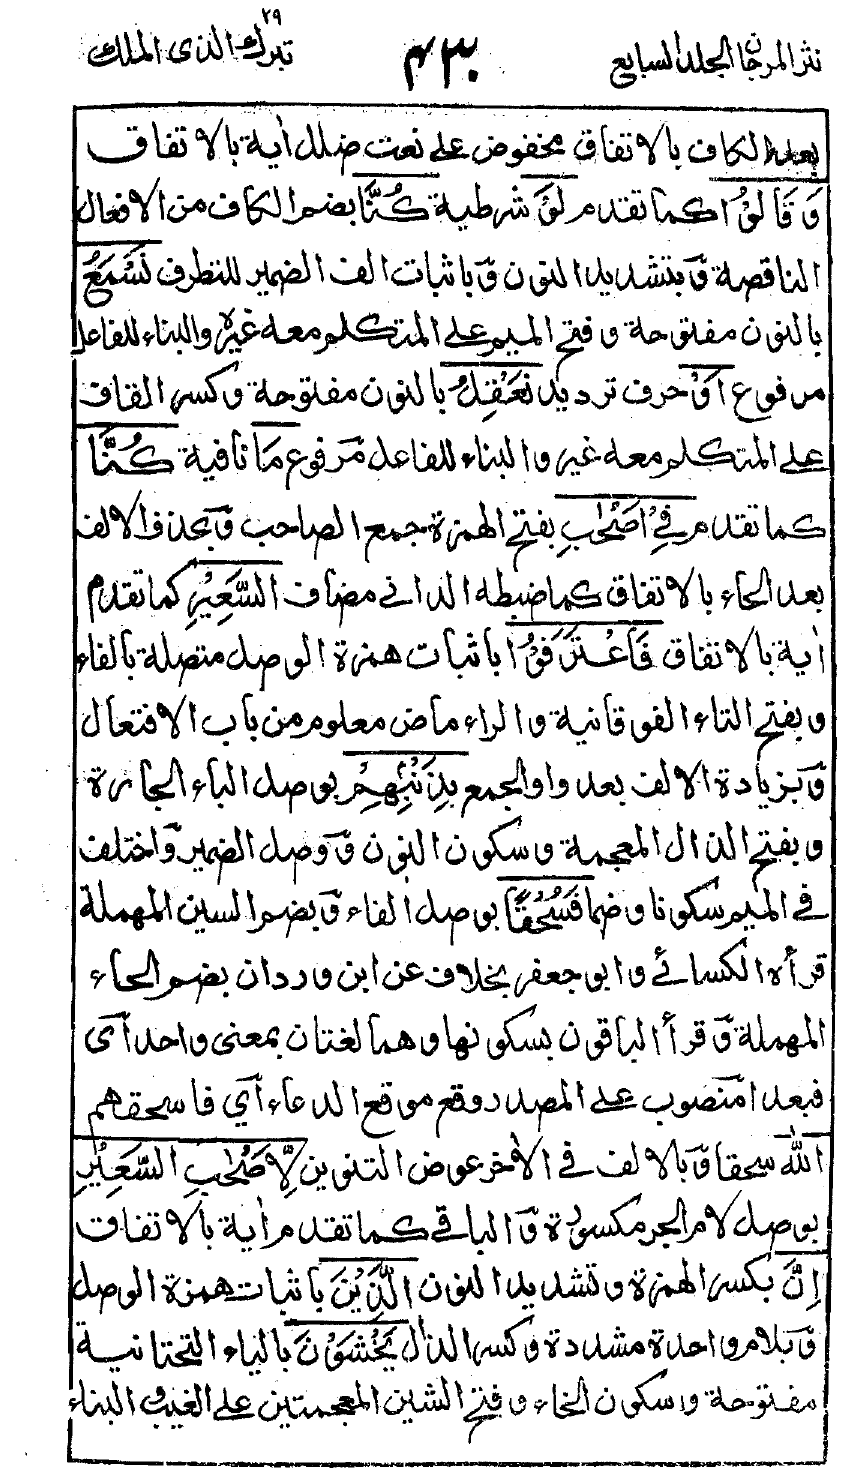 نثر المرجان الجلد السابع
٤٣٠
تبرك الذى الملك ٢٩
بعد الكاف بالاتفاق مخفوض على نعت ضلل اٰية بالاتفاق
وَقَالُوْا كما تقدم لَوْ شرطية كُنَّا بضم الكاف من الافعال
الناقصة وَبتشديد النون وَباثبات الف الضمير للتطرف نَسْمَعُ
بالنون مفتوحة وفتح الميم على المتكلم معه غيره والبناء للفاعل
مرفوع اَوْ حرف ترديد نَعْقِلُ بالنون مفتوحة وكسر القاف
على المتكلم معه غيره والبناء للفاعل مرفوع مَا نافية كُنَّا
كما تقدم فِيْ اَصْحٰبِ بفتح الهمزة جمع الصاحب وَبحذف الالف
بعد الحاء بالاتفاق كما ضبطه الدانى مضاف السَّعِيْرِ كما تقدم
اٰية بالاتفاق فَاعْتَرَفُوْا باثبات همزة الوصل متصلة بالفاء
وبفتح التاء الفوقانية والراء ماض معلوم من باب الافتعال
وَبزيادة الالف بعد واو الجمع بِذَنْۢبِهِمْ بوصل الباء الجارة
وبفتح الذال المعجمة وسكون النون وَوصل الضمير وَاختلف
فى الميم سكونا وضما فَسُحْقًا بوصل الفاء وَبضم السين المهملة
قرأه الكسائى وابو جعفر بخلاف عن ابن وردان بضم الحاء
المهملة وَقرأ الباقون بسكونها وهما لغتان بمعنى واحد اَى
فبعدا منصوب على المصدر وقع موقع الدعاء اَي فاسحقهم
الله سحقا وَبالالف فى الاٰخر عوض التنوين لِّاَصْحٰبِ السَّعِيْرِ
بوصل لام الجر مكسورة وَالباقى كما تقدم اٰية بالاتفاق
اِنَّ بكسر الهمزة وتشديد النون الَّذِيْنَ باثبات همزة الوصل
وَبلام واحدة مشددة وكسر الذال يَخْشَوْنَ بالياء التحتانية
مفتوحة وسكون الخاء وفتح الشين المعجمتين على الغيب والبناء